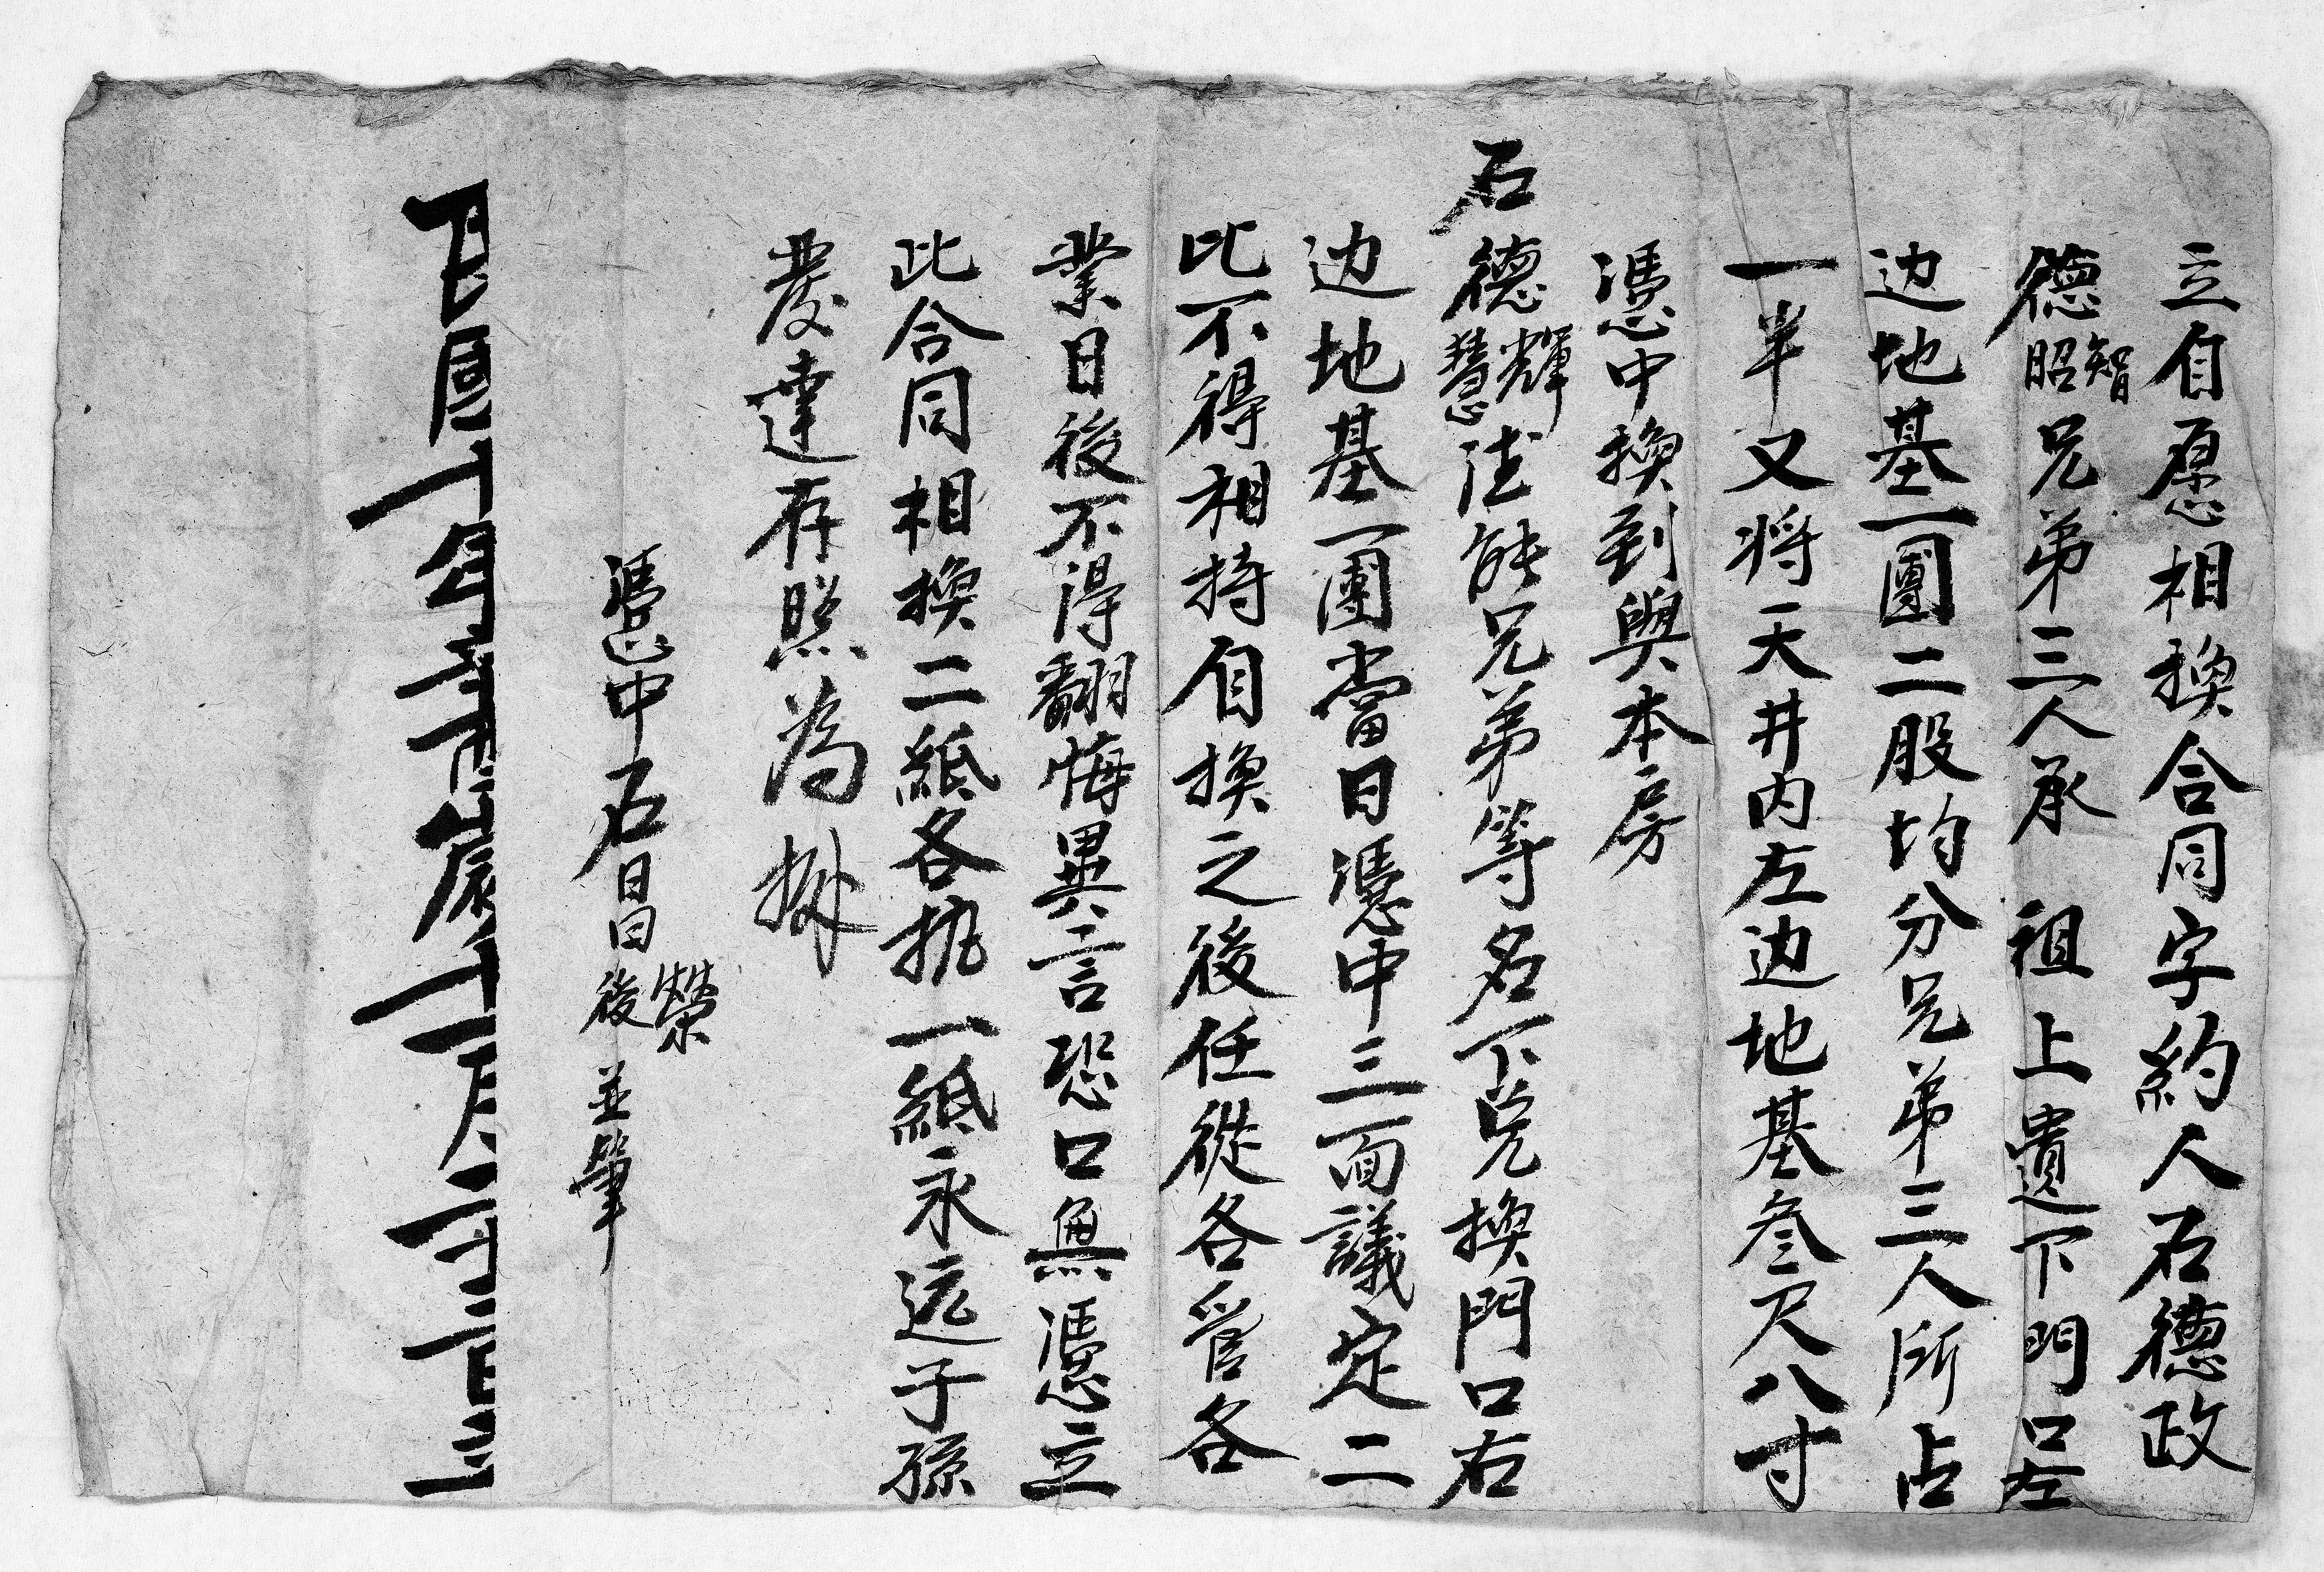 立自愿相換合同字約人石德政
德智昭兄弟三人承 祖上遺下門口左
边地基一團二股均分兄弟三人所占
一半又将天井内左边地基叁尺八寸
憑中換到與本房
石德輝慧法能兄弟等名下兑換門口右
边地基一團當日憑中三面議定二
比不得相持自換之後任從各管各
業日後不得翻悔異言恐口無憑立
此合同相換二紙各执一紙永远子孫
發達存照為據
憑中石昌榮後並筆